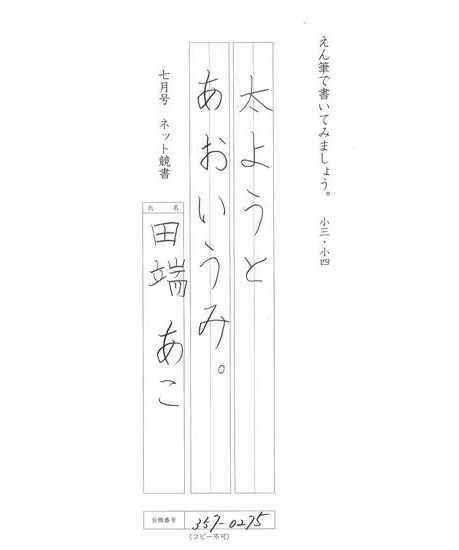 えん筆で書いてみましょう。 小三・小四
太ようと
あおいうみ。
七月号 ネット競書
氏 名
田端 あこ
台帳番号 357-0275
(コピー不可)